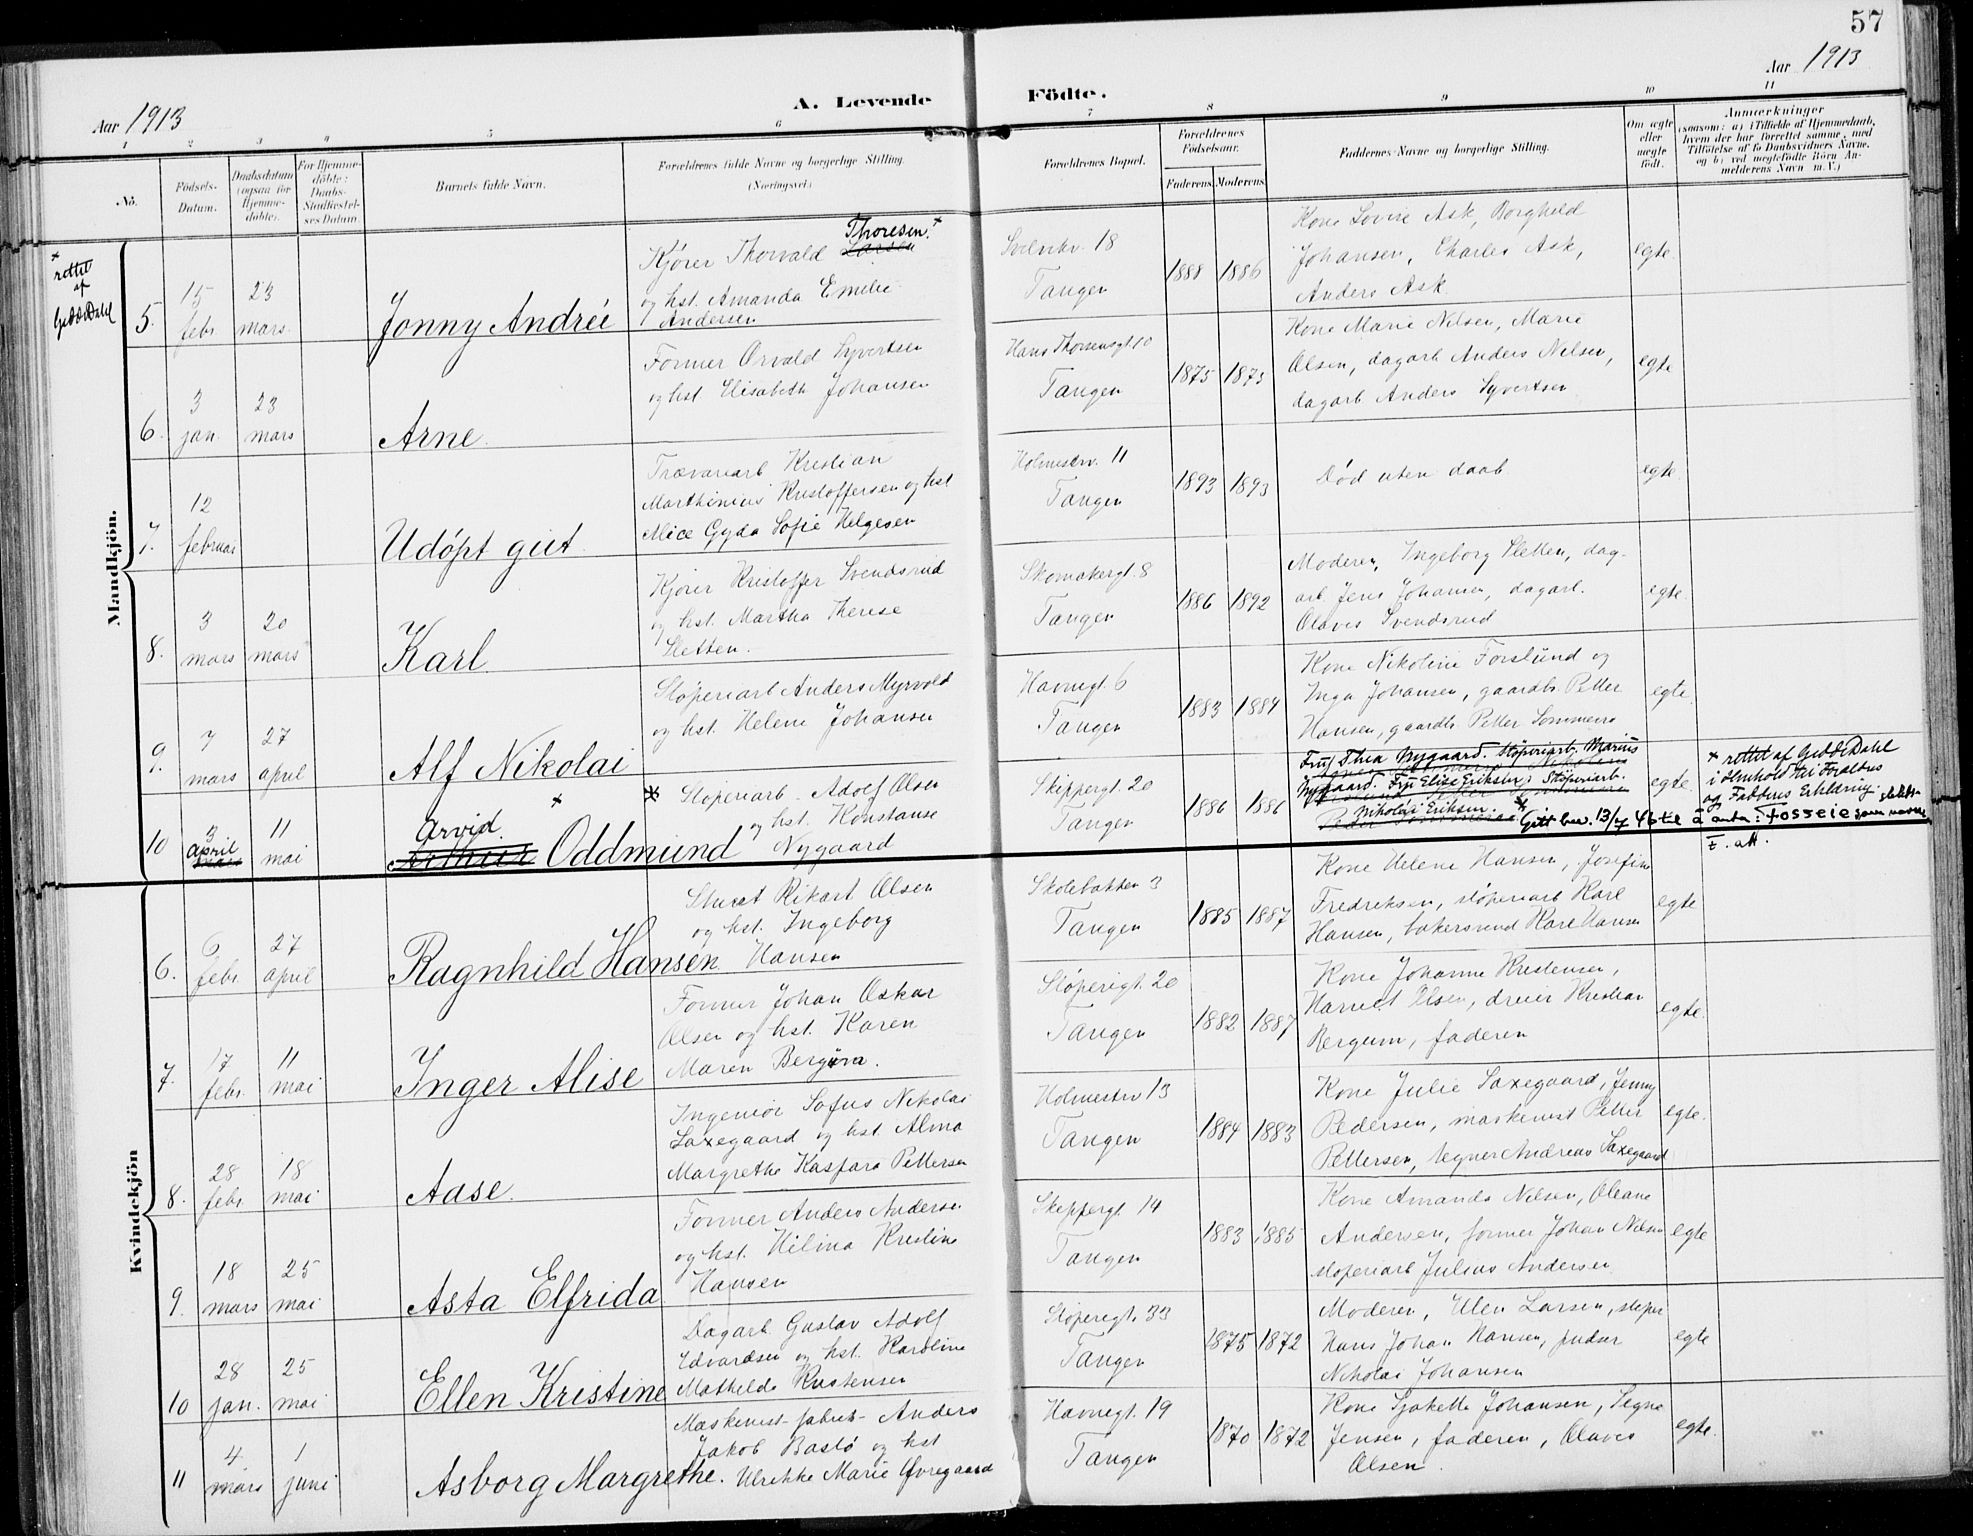 57
Aar 1913
A. Levende Födte.
Aar 1913
1 2 3 4 5 6 7 8 9 10 11
No.
Födsels-
Datum.
Daabsdatum
(ogsaa for
Hjemme-
døbte).
For Hjemme-
döbte:
Daabs-
Stadfæstel-
ses Datum
Barnets fulde Navn.
Forældrenes fulde Navne og borgerlige Stilling.
(Næringsvei)
Forældrenes Bopæl.
Forældrenes
Födselsaar.
Faderens Moderens
Faddernes Navne og borgerlige Stilling.
Om ægte
eller
uægte
født.
Anmærkninger
(saasom: a) i Tilfælde af Hjemmedaab,
hvem der har forrettet samme, med
Tilföielse af to Daabsvidners Navne.
og b) ved uegtefödte Börn An-
melderens Navn m. V.)
Mandkjön.
× rettet
af
Gidd. Dahl
5.
15
febr.
23
mars
Jonny Andreé
Thoresen ×
Kjører Thorvald Larsen
og hst. Amanda Emilie
Andersen
Svelvikv. 18
Tangen
1888 1886
Kone Lovise Ask, Borghild
Johansen, Charles Ask,
Anders Ask
egte
6.
3
jan.
23
mars
Arne
Former Orvald Syvertsen
og hst. Elisabeth Johansen
Hans Thorsensgt. 10
Tangen
1875 1873
Kone Marie Nilsen, Marie
Olsen, dagarb Anders Nilsen,
dagarb Anders Syvertsen
egte
7.
12
februar
Udøpt gut
Trævarearb Kristian
Marthinius Kristoffersen og hst
Alice Gyda Sofie Helgesen
Holmestrv. 11
Tangen
1893 1893
Død uten daab
egte
8.
3
mars
20
mars
Karl
Kjører Kristoffer Svendsrud
og hst. Martha Therese
Sletten.
Skomakergt. 8
Tangen
1886 1892
Moderen, Ingeborg Sletten, dag-
arb Jens Johansen, dagarb.
Olaves Svendsrud
egte
9.
7
mars
27
april
Alf Nikolai
Støperiarb Anders Myrvold
og hst. Helene Johansen
Havnegt. 6
Tangen
1883 1884
Kone Nikoline Forslund og
Inga Johansen, gaardb. Petter
Hansen, gaardb. Petter Sommero
egte
10
april
11
mai
Arvid ×
Arthur Oddmund
× Støperiarb. Adolf Olsen
og hst. Konstanse
Nygaard
Skippergt. 20
Tangen
1886 1886
Fru Thea Nygaard. Støperiarb. Marius
Nygaard. Fru Elise Eriksen. Støperiarb.
Nikolai Eriksen. × Gitt bev. 13/7 46 til å anta: Fosseie som slekts-
navn
egte
× rettet af Gidd. Dahl
i Henhold til Forældres
og Faddres Erklæring
E. att.
Kvindekjön
6.
6
febr.
27
april
Ragnhild Hansen
Stuert Rikart Olsen
og hst. Ingeborg
Hansen
Skolebakken 3
Tangen
1885 1887
Kone Helene Hansen, Josefine
Fredriksen, støperiarb Karl
Hansen, bakersvend Karl Hansen
egte
7.
17
febr.
11
mai
Inger Alise
Former Johan Oskar
Olsen og hst. Karen
Maren Bergum.
Støperigt. 20
Tangen
1882 1887
Kone Johanne Kristensen,
Harriet Olsen, dreier Kristian
Bergum, faderen
egte
8.
28
febr.
18
mai
Aase.
Ingeniør Sofus Nikolai
Saxegaard og hst. Alma
Margrethe Kaspara Pettersen
Holmestrv 13
Tangen
1884 1883
Kone Julie Saxegaard, Jenny
Pedersen, maskinist Petter
Pettersen, tegner Andreas Saxegaard
egte.
9.
18
mars
25
mai
Asta Elfrida
Former Anders Andersen
og hst. Hilma Kristine
Hansen
Skippergt. 14
Tangen
1883 1885
Kone Amanda Nilsen, Oleane
Andersen, former Johan Nilsen
støperiarb Julius Andersen
egte
10
28
jan.
25
mai
Ellen Kristine
Dagarb. Gustav Adolf
Edvardsen og hst. Karoline
Mathilde Kristensen
Støperigt. 33
Tangen
1875 1872
Moderen, Ellen Larsen, støper
Hans Johan Hansen, pudser
Nikolai Johansen
egte
11
4
mars
1
juni
Asborg Margrethe.
Maskinist-fabrik- Anders
Jakob Bastø og hst
Ulrikke Marie Øvregaard
Havnegt. 19
Tangen
1870 1872
Kone Sjakette Johansen, Signe
Jensen, faderen, Olaves
Olsen.
egte.